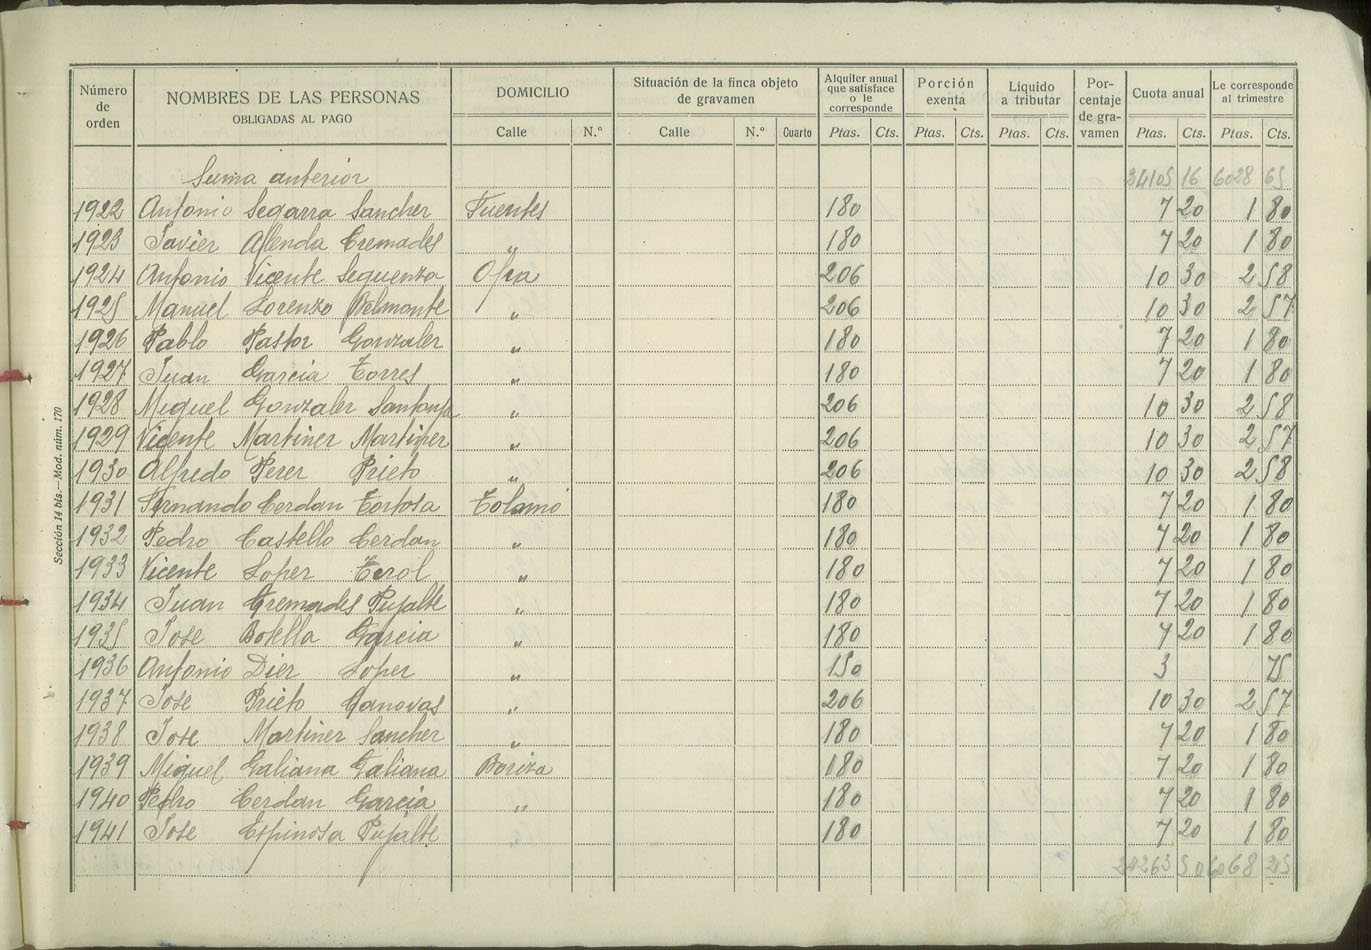 Número de orden NOMBRES DE LAS PERSONAS OBLIGADAS AL PAGO DOMICILIO Situación de la finca objeto de gravamen Alquiler anual que satisface o le corresponde Porción exenta Líquido a tributar Porcentaje de gravamen Cuota anual Le corresponde al trimestre
Calle N.º Calle N.º Cuarto Ptas. Cts. Ptas. Cts. Ptas. Cts. Ptas. Cts. Ptas. Cts.
Suma anterior 24105 16 6028 65
1922 Antonio Segarra Sancher Fuentes 180 7 20 1 80
1923 Javier Allenda Cremades " 180 7 20 1 80
1924 Antonio Vicente Sequenza Ofra 206 10 30 2 58
1925 Manuel Lorenzo Belmonte " 206 10 30 2 57
1926 Pablo Pastor Gonzaler " 180 7 20 1 80
1927 Juan Garcia Torres " 180 7 20 1 80
1928 Miguel Gonzaler " 206 10 30 2 58
1929 Vicente Martiner Martiner " 206 10 30 2 57
1930 Alfredo Perer Prieto " 206 10 30 2 58
1931 Fernando Cerdan Tortosa 180 7 20 1 80
1932 Pedro Castello Cerdan " 180 7 20 1 80
1933 Vicente Loper Terol " 180 7 20 1 80
1934 Juan Cremades Pujalte " 180 7 20 1 80
1935 Jose Botella Garcia " 180 7 20 1 80
1936 Antonio Dier Loper " 150 3 75
1937 Jose Prieto Canovas " 206 10 30 2 57
1938 Jose Martiner Sancher " 180 7 20 1 80
1939 Miguel Galiana Galiana Boriza 180 7 20 1 80
1940 Pedro Cerdan Garcia " 180 7 20 1 80
1941 Jose Espinosa Pujalte 180 7 20 1 80
24263 50 6068 25
Sección 14 bis.—Mod. núm. 170